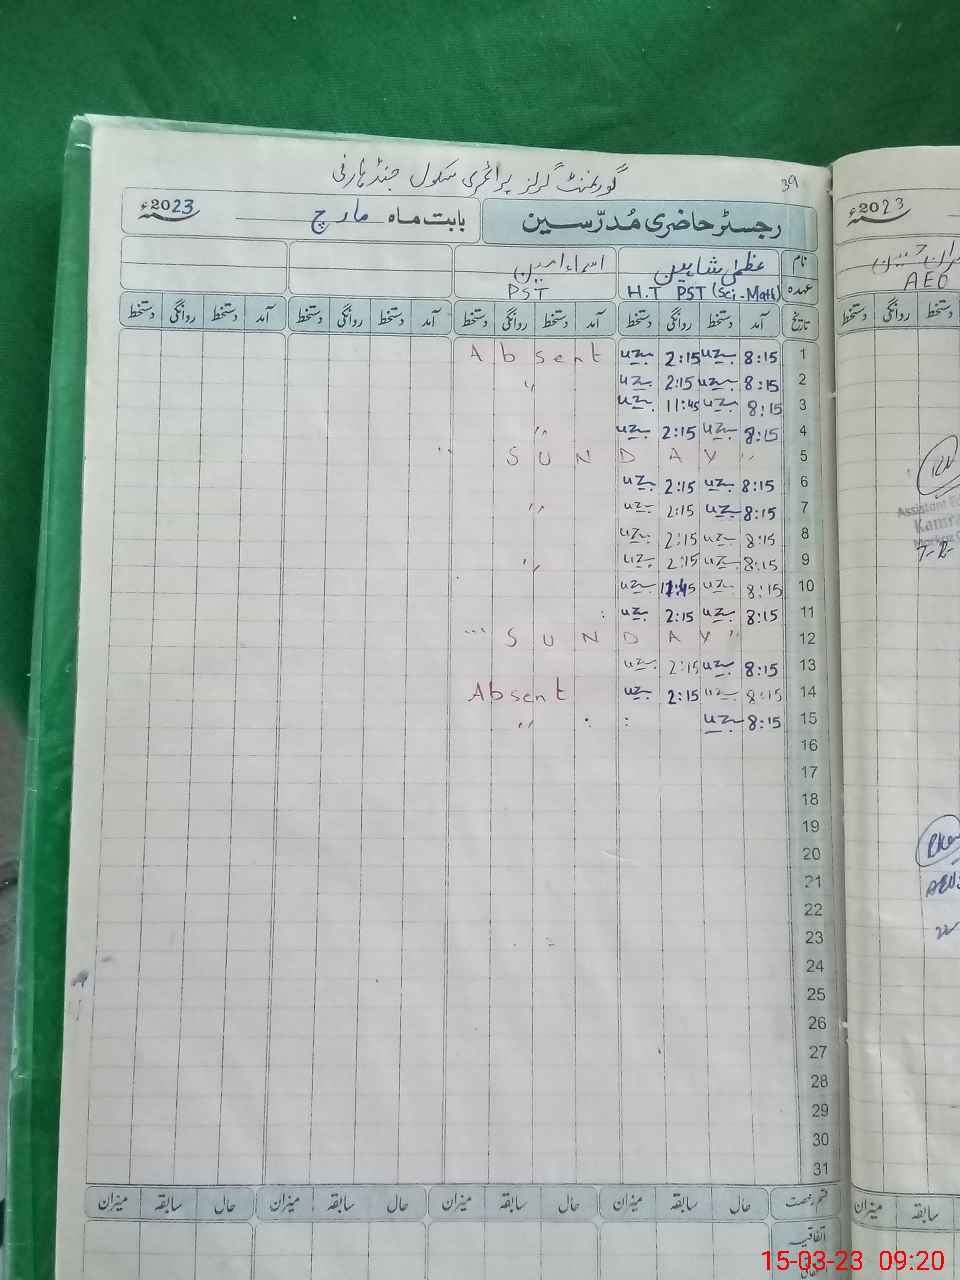 گورنمنٹ گرلز پرائمری سکول جنڈ ہارفی 39
رجسٹر حاضری مُدرّسین بابت ماہ مارچ 2023ء
نام عظمیٰ شاہین اسماء امین
عہدہ H.T PST (Sci-Math) PST
تاریخ آمد دستخط روانگی دستخط آمد دستخط روانگی دستخط آمد دستخط روانگی دستخط آمد دستخط روانگی دستخط
1 8:15 uz 2:15 uz Absent
2 8:15 uz 2:15 uz "
3 8:15 uz 11:45 uz
4 8:15 uz 2:15 uz "
5 " SUNDAY "
6 8:15 uz 2:15 uz
7 8:15 uz 2:15 uz "
8 8:15 uz 2:15 uz
9 8:15 uz 2:15 uz "
10 8:15 uz 11:45 uz
11 8:15 uz 2:15 uz
12 " SUNDAY "
13 8:15 uz 2:15 uz
14 8:15 uz 2:15 uz Absent
15 8:15 uz "
16
17
18
19
20
21
22
23
24
25
26
27
28
29
30
31
حال سابقہ میزان حال سابقہ میزان حال سابقہ میزان حال سابقہ میزان
اتفاقیہ
2023ء
AEO
دستخط روانگی دستخط
Assistant
7-2-
سابقہ میزان
15-03-23 09:20